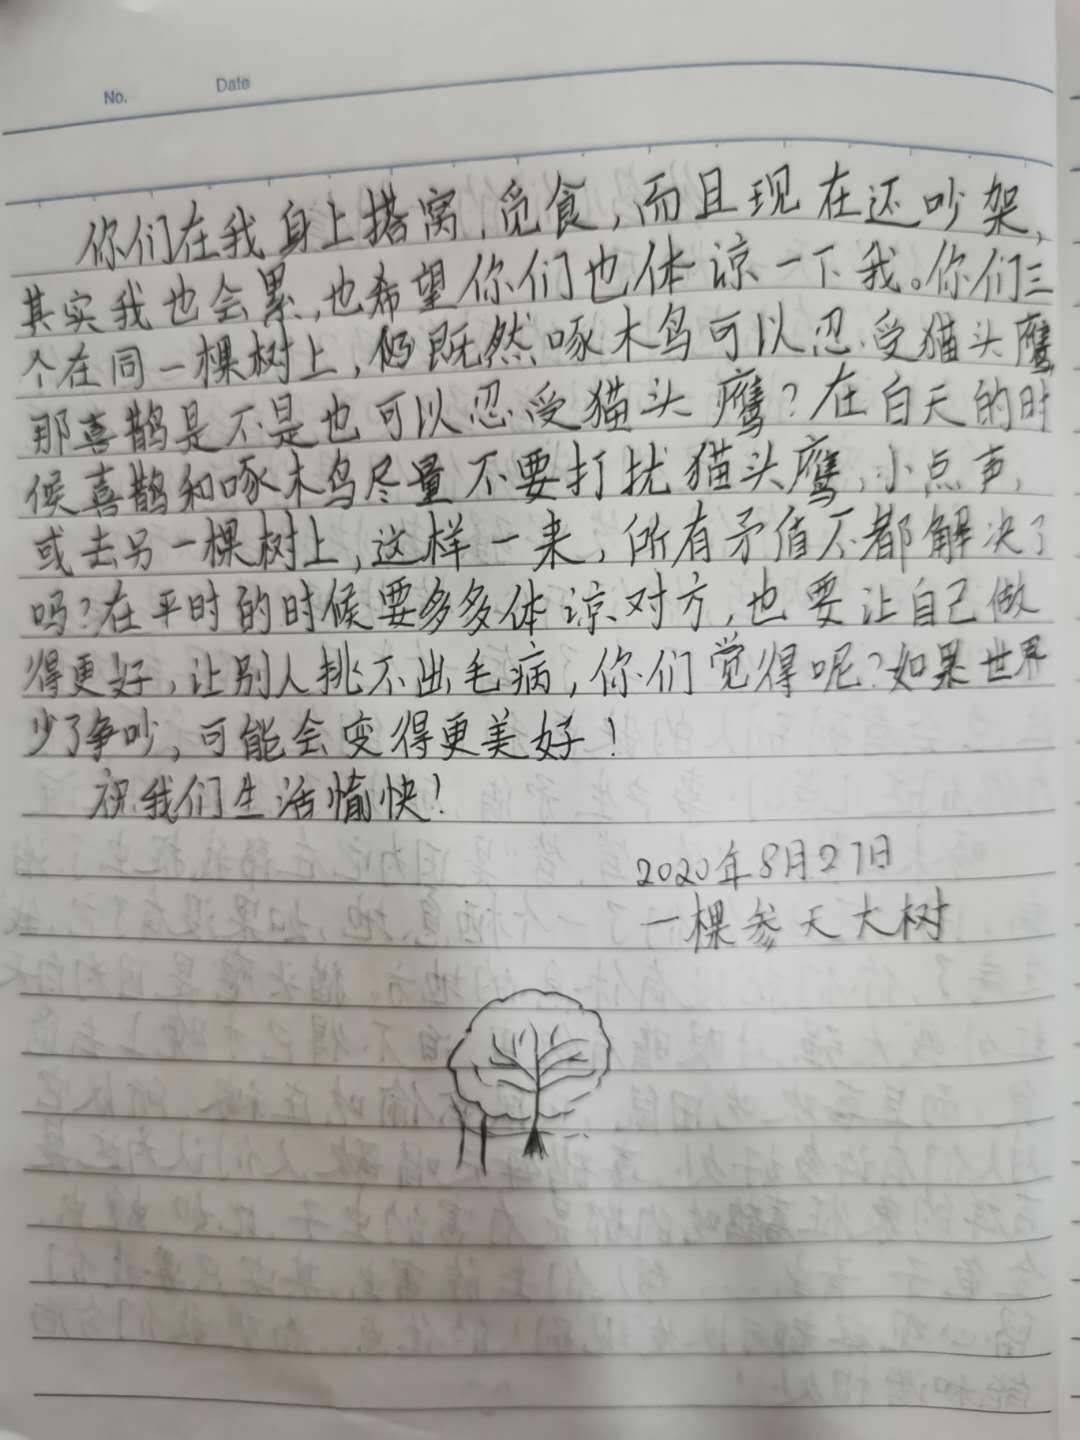 No. Date
你们在我身上搭窝,觅食,而且现在还吵架,
其实我也会累,也希望你们也体谅一下我。你们三
个在同一棵树上,既然啄木鸟可以忍受猫头鹰
那喜鹊是不是也可以忍受猫头鹰?在白天的时
候喜鹊和啄木鸟尽量不要打扰猫头鹰,小点声,
或去另一棵树上,这样一来,所有矛值不都解决了
吗?在平时的时候要多多体谅对方,也要让自己做
得更好,让别人挑不出毛病,你们觉得呢?如果世界
少了争吵,可能会变得更美好!
祝我们生活愉快!
2020年8月27日
一棵参天大树